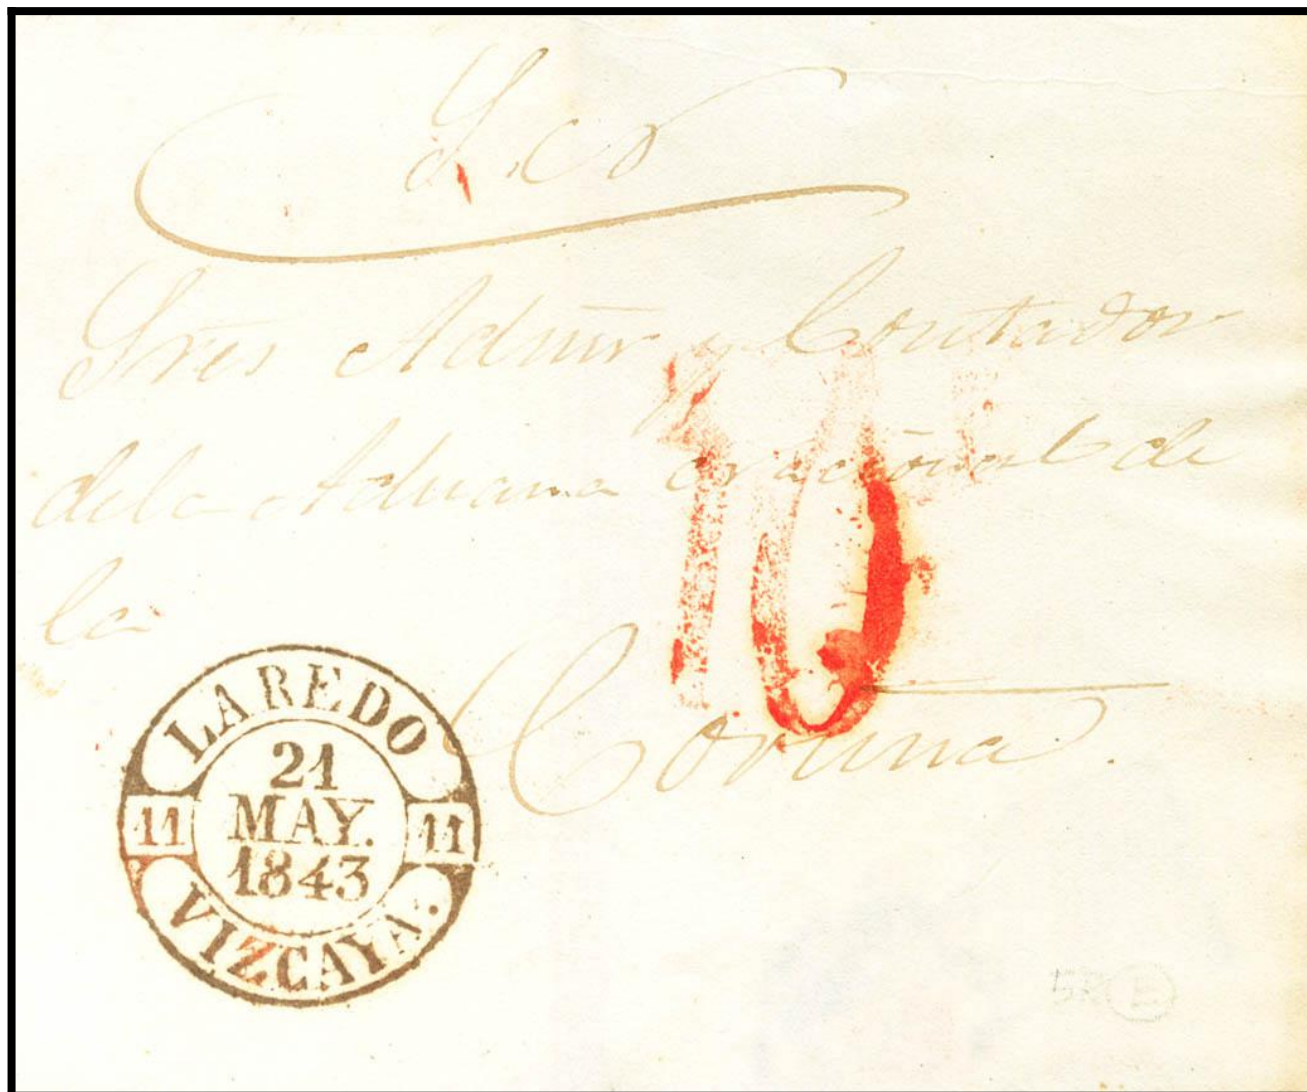 Sres Admr y Contador
de la Aduana nacional de
la
Coruña.
10
LAREDO
21
MAY.
1843
11 11
VIZCAYA.